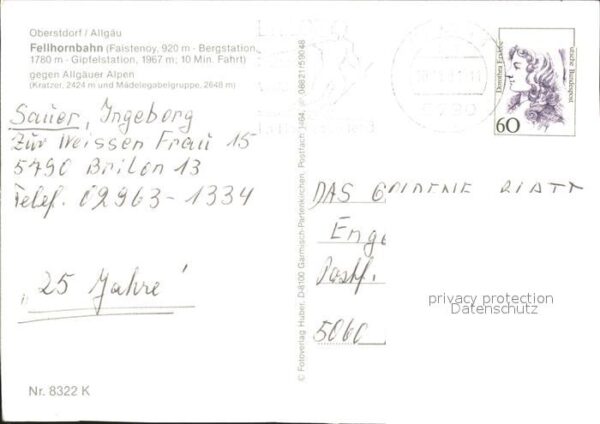 Oberstdorf / Allgäu
Fellhornbahn (Faistenoy, 920 m · Bergstation,
1780 m · Gipfelstation, 1967 m; 10 Min. Fahrt)
gegen Allgäuer Alpen
(Kratzer, 2424 m und Mädelegabelgruppe, 2648 m)
Sauer, Ingeborg
Zur Weissen Frau 15
5790 Brilon 13
Telef. 02963-1334
„25 Jahre"
Nr. 8322 K
© Fotoverlag Huber, D-8100 Garmisch-Partenkirchen, Postfach 1464, 08821/59048
5790
Dorothea
Deutsche Bundespost
60
DAS GOLDENE BLATT
Postf.
5060
privacy protection
Datenschutz